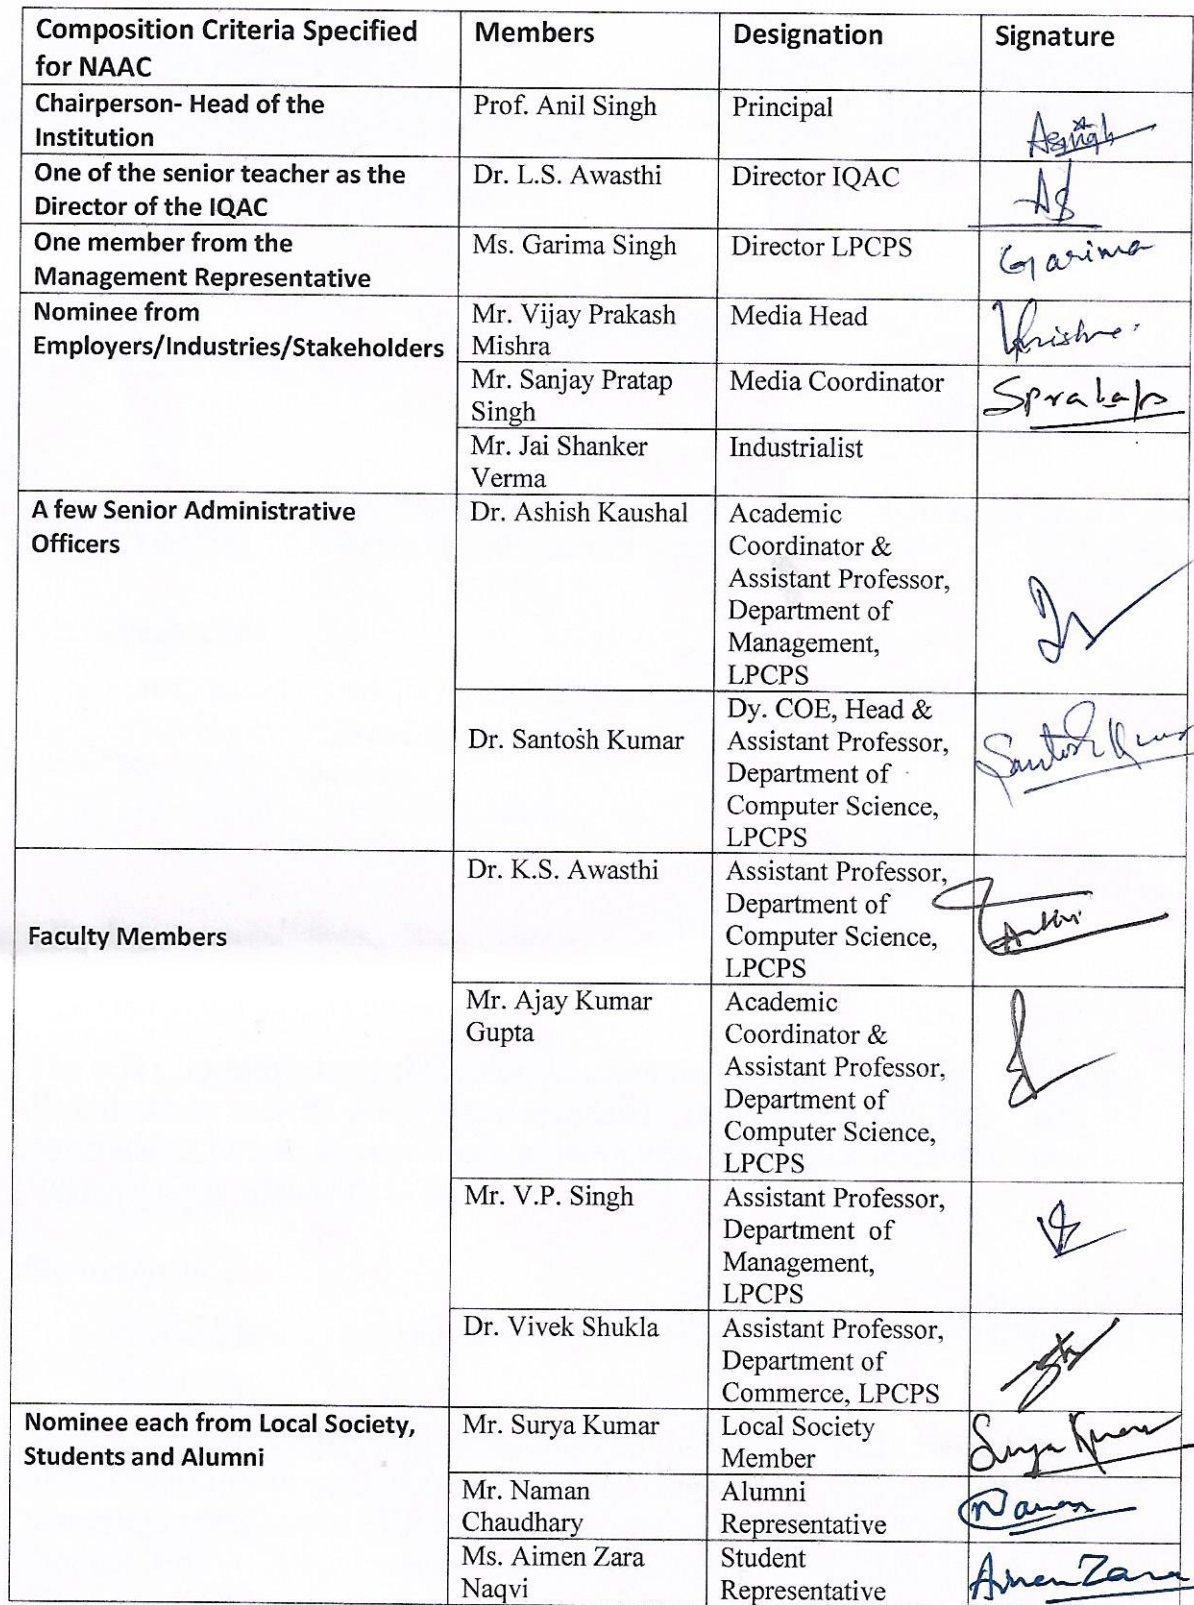 Composition Criteria Specified
for NAAC
Members
Designation
Signature
Chairperson- Head of the
Institution
Prof. Anil Singh
Principal
Asingh
One of the senior teacher as the
Director of the IQAC
Dr. L.S. Awasthi
Director IQAC
One member from the
Management Representative
Ms. Garima Singh
Director LPCPS
Garima
Nominee from
Employers/Industries/Stakeholders
Mr. Vijay Prakash
Mishra
Media Head
Mr. Sanjay Pratap
Singh
Media Coordinator
SPratap
Mr. Jai Shanker
Verma
Industrialist
A few Senior Administrative
Officers
Dr. Ashish Kaushal
Academic
Coordinator &
Assistant Professor,
Department of
Management,
LPCPS
Dr. Santosh Kumar
Dy. COE, Head &
Assistant Professor,
Department of
Computer Science,
LPCPS
Santosh Kumar
Faculty Members
Dr. K.S. Awasthi
Assistant Professor,
Department of
Computer Science,
LPCPS
Mr. Ajay Kumar
Gupta
Academic
Coordinator &
Assistant Professor,
Department of
Computer Science,
LPCPS
Mr. V.P. Singh
Assistant Professor,
Department of
Management,
LPCPS
Dr. Vivek Shukla
Assistant Professor,
Department of
Commerce, LPCPS
Nominee each from Local Society,
Students and Alumni
Mr. Surya Kumar
Local Society
Member
Surya Kumar
Mr. Naman
Chaudhary
Alumni
Representative
Naman
Ms. Aimen Zara
Naqvi
Student
Representative
Aimen Zara